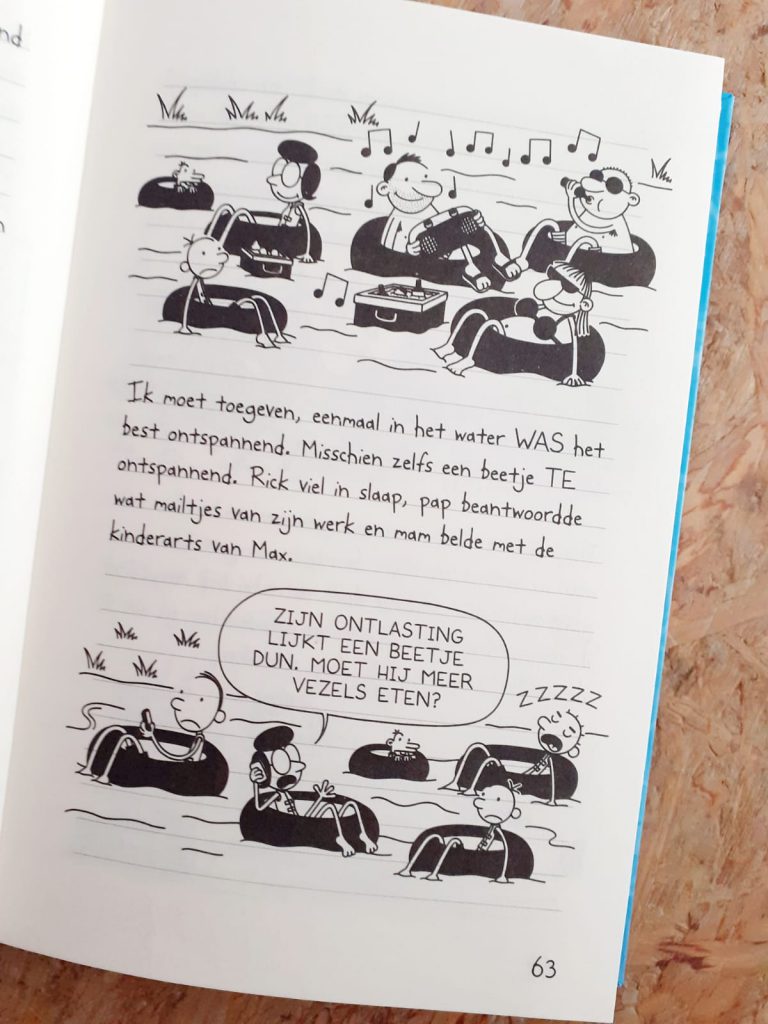 nd
n
Ik moet toegeven, eenmaal in het water WAS het
best ontspannend. Misschien zelfs een beetje TE
ontspannend. Rick viel in slaap, pap beantwoordde
wat mailtjes van zijn werk en mam belde met de
kinderarts van Max.
ZIJN ONTLASTING
LIJKT EEN BEETJE
DUN. MOET HIJ MEER
VEZELS ETEN?
ZZZZZ
63